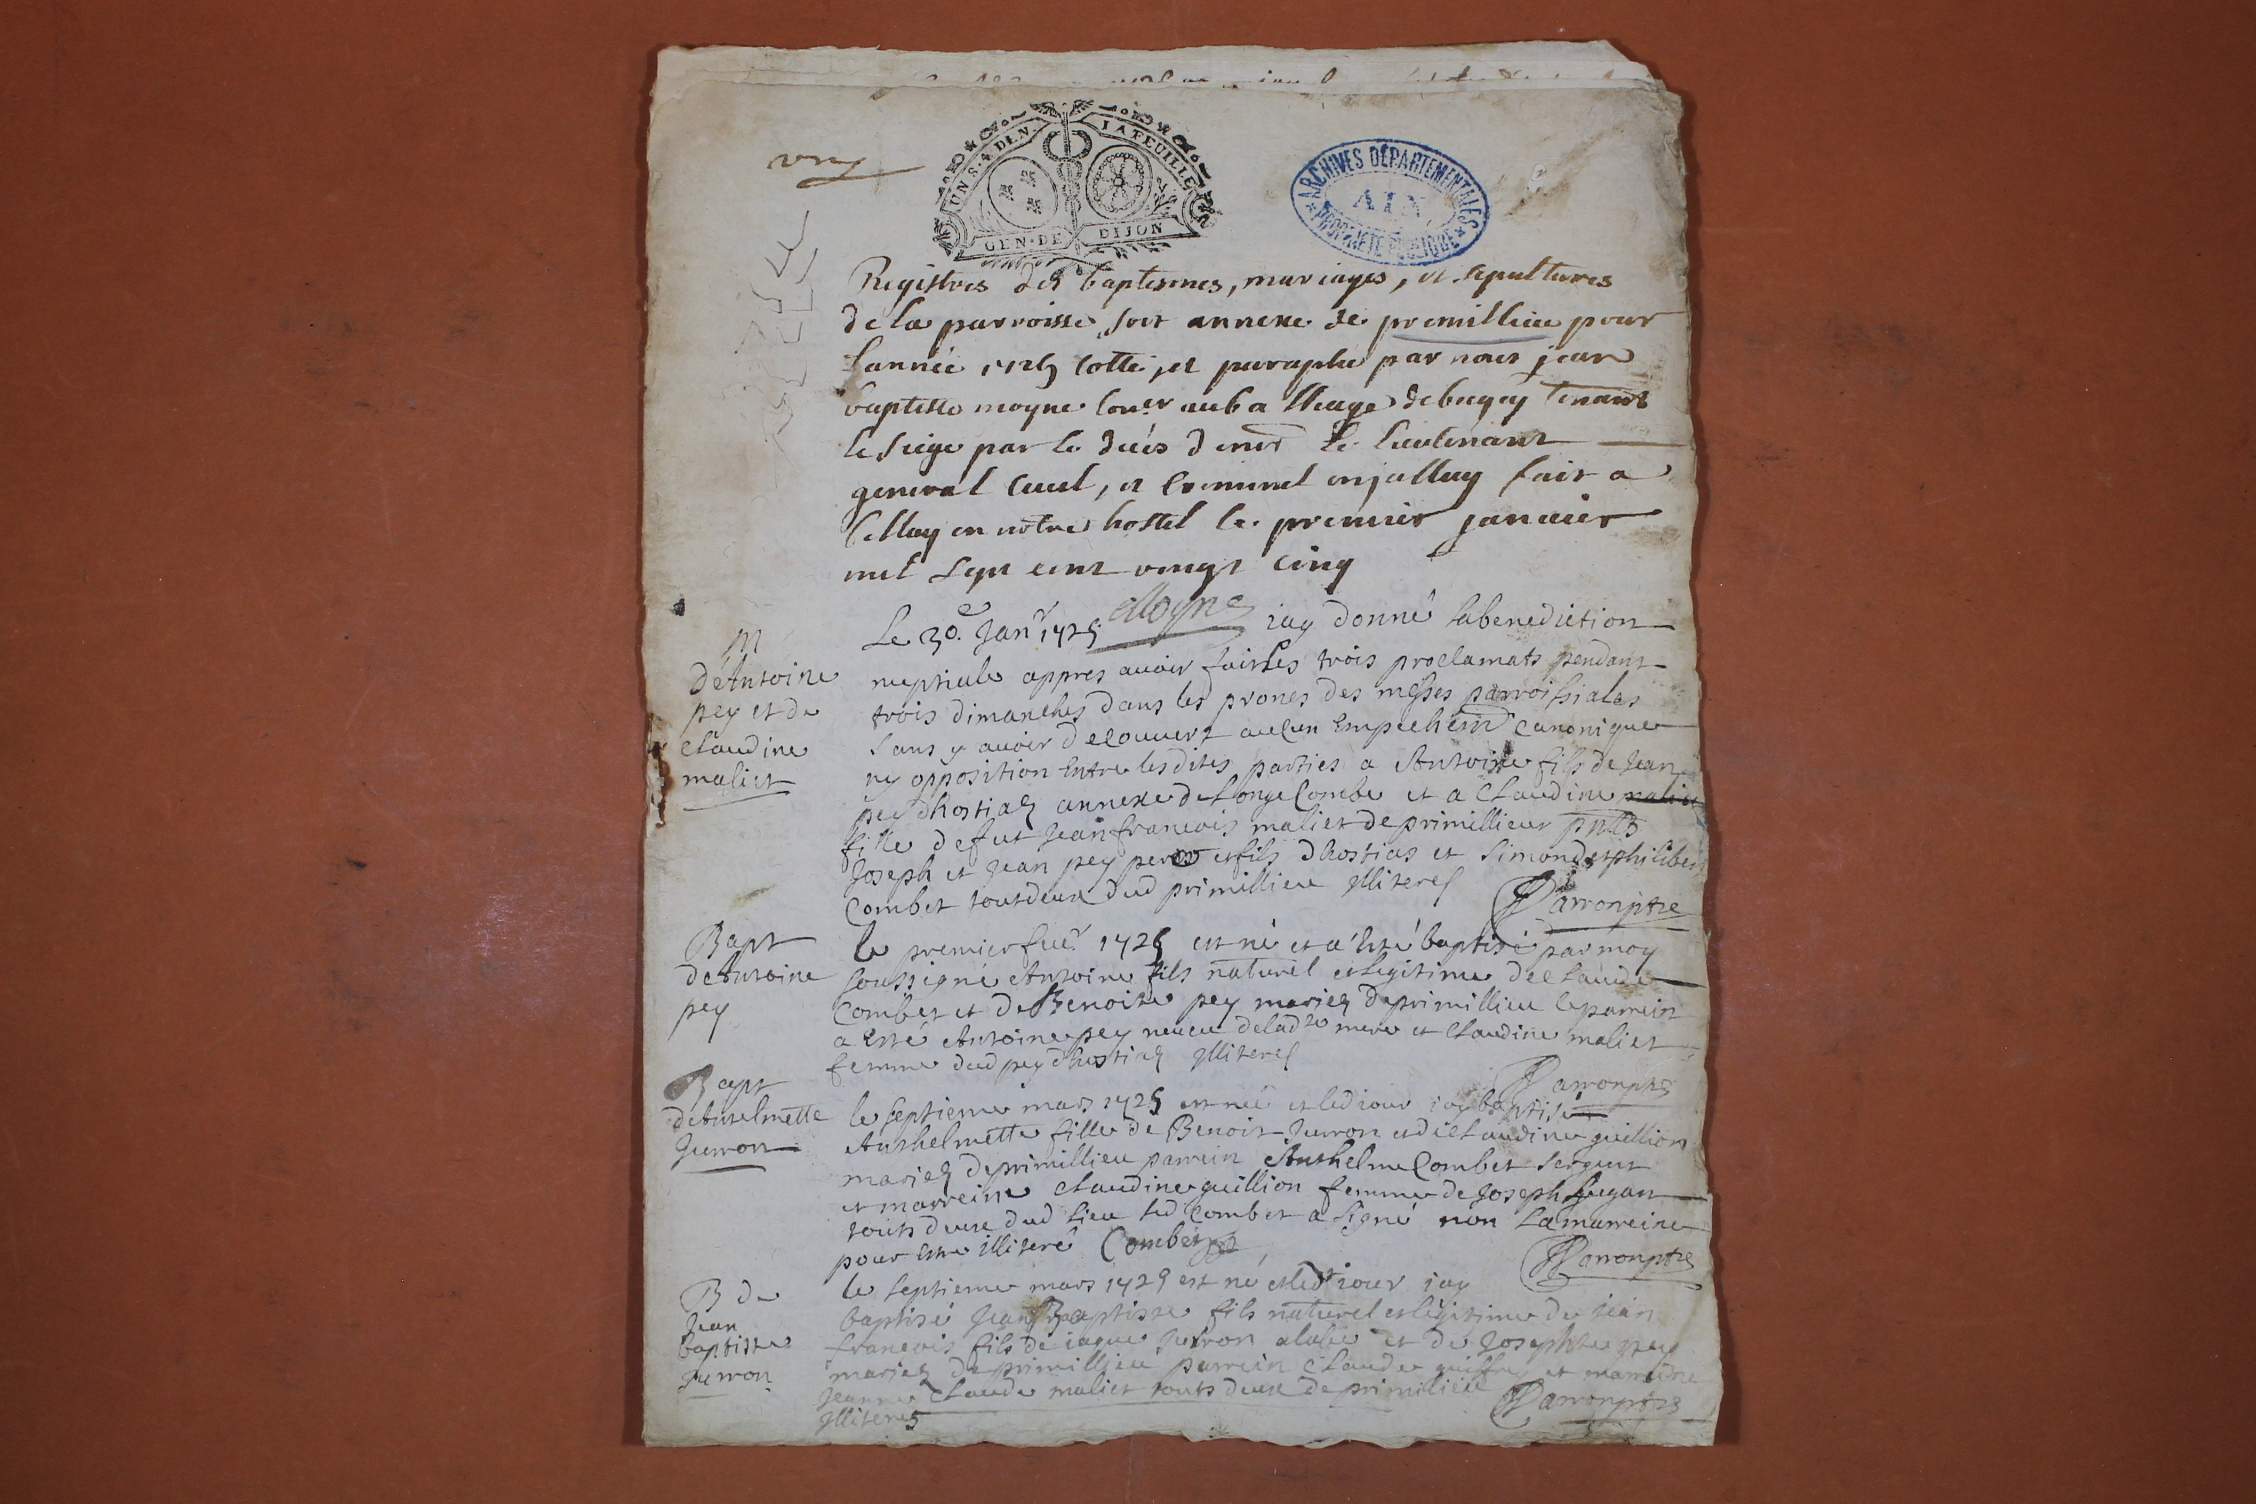 UN S. 4 DEN. LA FEUILLE
GEN. DE DIJON
ARCHIVES DEPARTEMENTALES
AIN
PROPRIETE PUBLIQUE
Registres des baptesmes, mariages, et sepultures
de la parroisse soit annexe de premillieu pour
l'année 1725 cotté, et paraphé par nous jean
baptiste moyne con.er au balliage de bugey tenant
le siege par le décés de mr le lieutenant
general civil, et criminel en jalluy fait a
belley en notre hostel le premier janvier
mil sept cent vingt cinq
Moyne
M
d'Antoine
pey et de
Claudine
maliet
Le 30.e Jan.r 1725 iay donné la benediction
nuptiale appres avoir fait les trois proclamats pendant
trois dimanches dans les prones des messes parroissiales
sans y avoir decouvert aucun Empechem canonique
ny opposition Entre lesdites parties a Antoine fils de Jean
pey dhostias annexe de Longe Combe et a Claudine maliet
fille de fut Jean francois maliet de primillieu pnts
Joseph et Jean pey pere et fils dhostias et Simond et philibert
Combet tout deux dud primillieu illiteres
Darronptre
Bapt
de Antoine
pey
le premier fue.r 1725 est né et a Esté baptisé par moy
soussigné Antoine fils naturel et legitime de Claude
Combet et de Benoite pey mariez de primillieu le parrein
a Esté Antoine pey neveu de lad.te mere et Claudine maliet
femme dud pey dhostias illiteres
Darronptre
Bapt
de Antelmette
Juvron
le septieme mars 1725 est née et led iour iay baptisé
Anthelmette fille de Benoit Juvron et de Claudine guillion
mariez de primillieu parrein Anthelme Combet sergent
et marreine Claudine guillion femme de Joseph Jugan
touts deux dud lieu led Combet a signé non la marreine
pour Estre illiteré Combet
Darronptre
B de
Jean
baptiste
Juvron
le septieme mars 1725 est né et led iour iay
baptisé Jean Baptiste fils naturel et legitime de jean
francois fils de iaque Juvron alabe et de Josephte pey
mariez de primillieu parrein Claude guiffrey et marreine
Jeanne Claude maliet touts deux de primillieu
illiteres
Darronptre